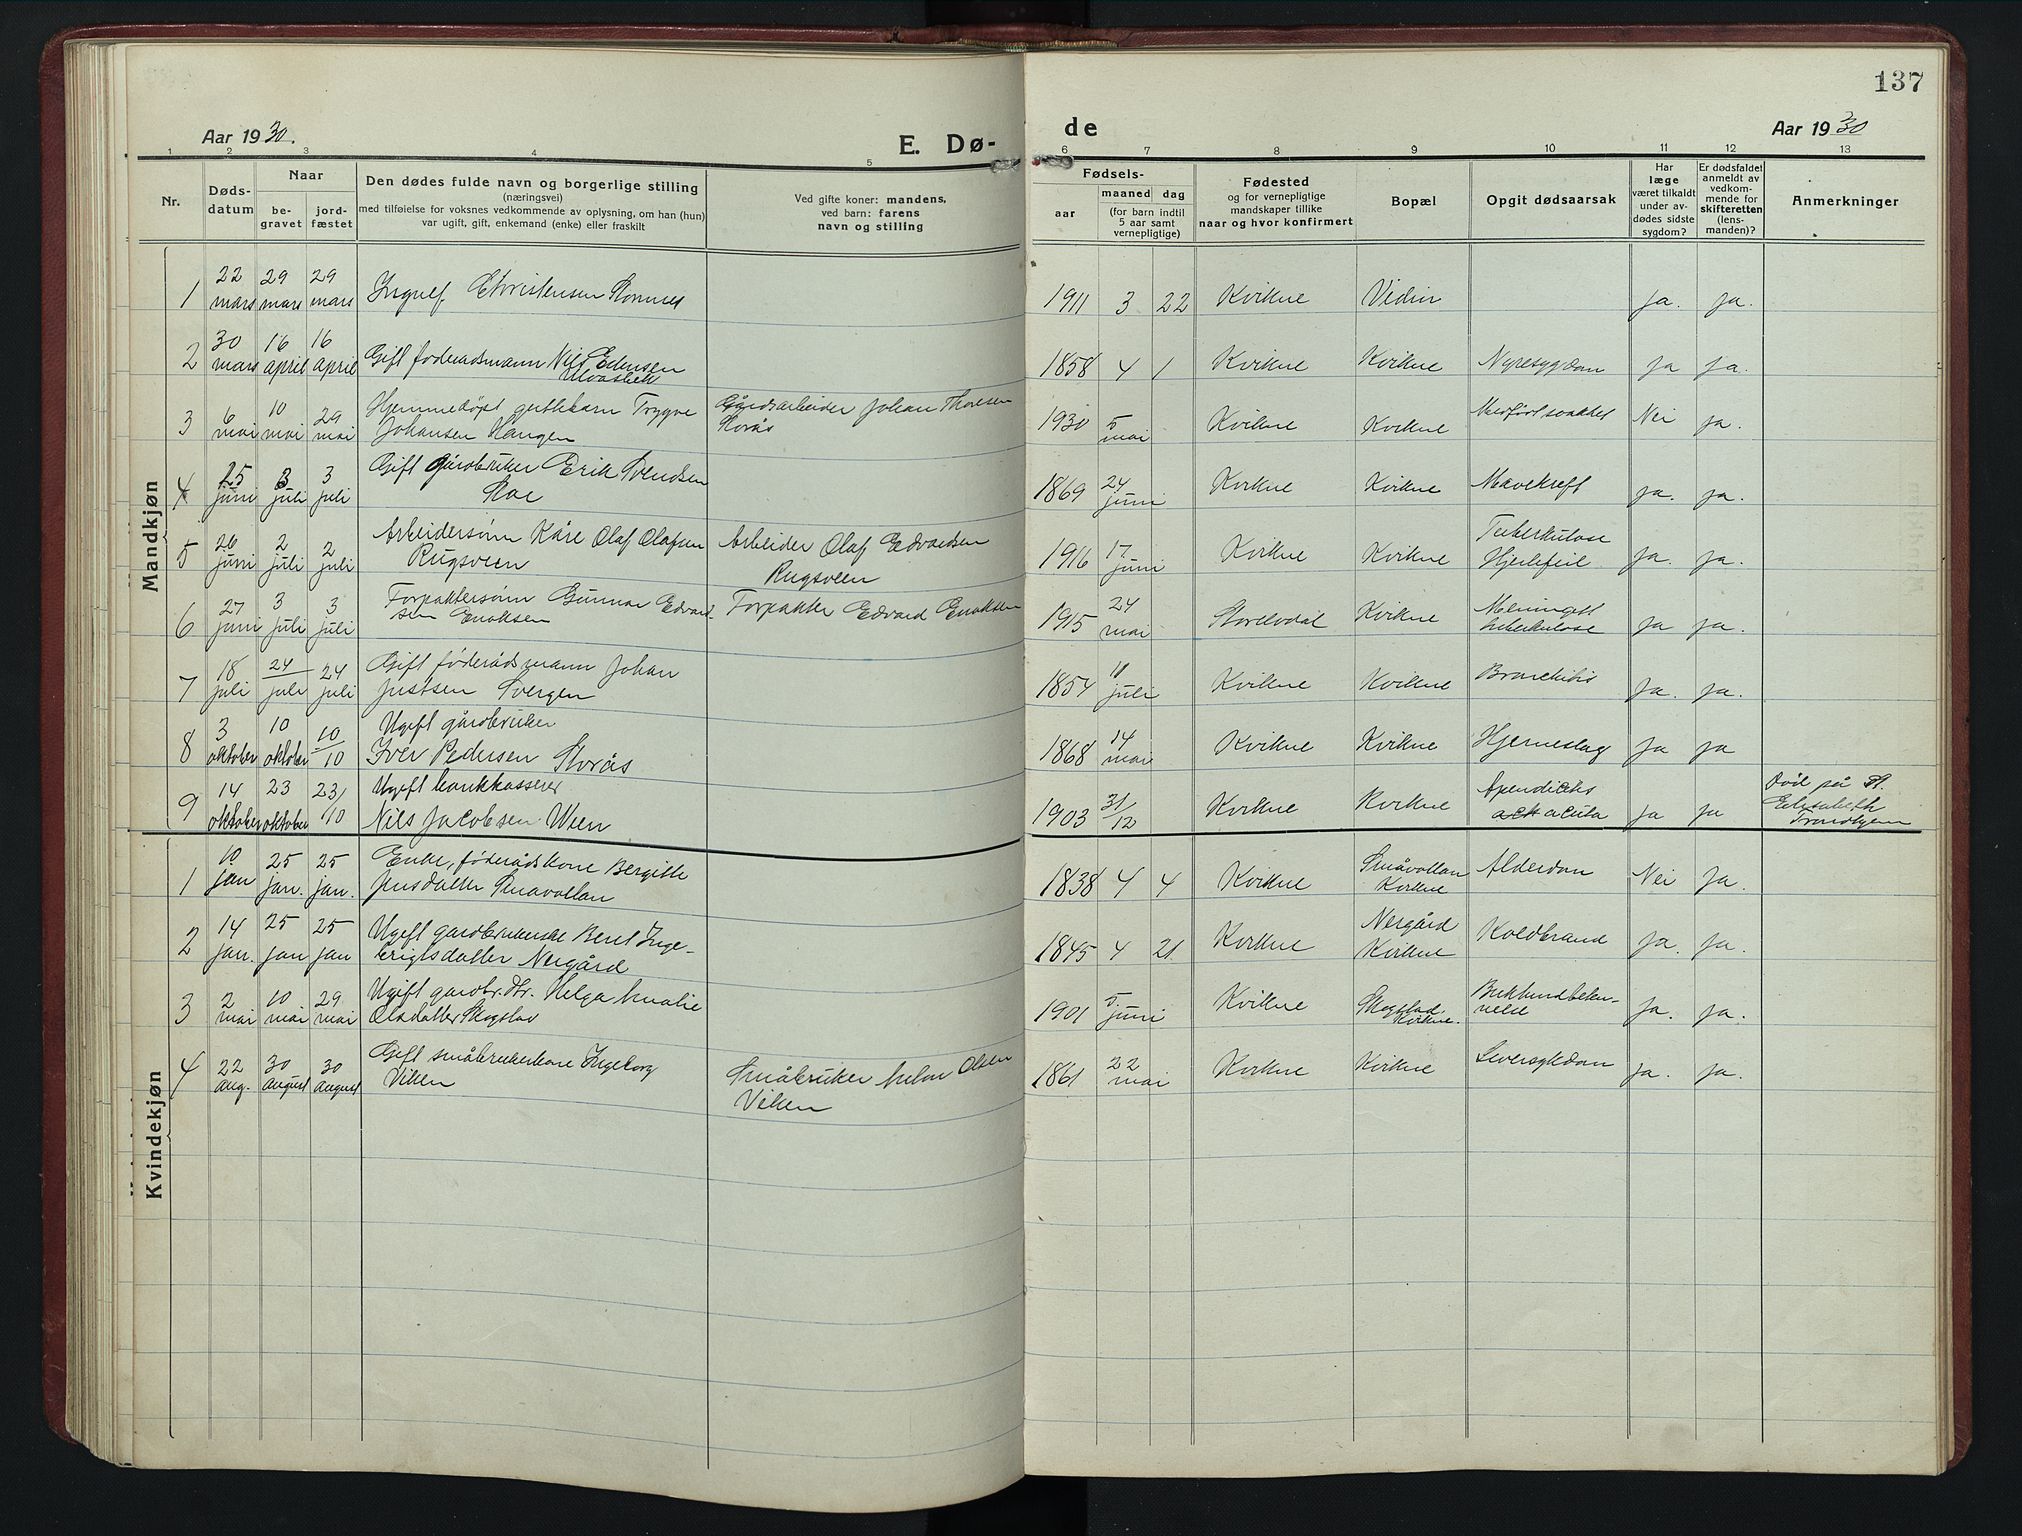 137
Aar 1930.
E. Dø-
de
Aar 1930
1 2 3 4 5 6 7 8 9 10 11 12 13
Nr.
Døds-
datum
Naar
be-
gravet
jord-
fæstet
Den dødes fulde navn og borgerlige stilling
(næringsvei)
med tilføielse for voksnes vedkommende av oplysning, om han (hun)
var ugift, gift, enkemand (enke) eller fraskilt
Ved gifte koner: mandens,
ved barn: farens
navn og stilling
Fødsels-
aar
maaned dag
(for barn indtil
5 aar samt
vernepligtige)
Fødested
og for vernepligtige
mandskaper tillike
naar og hvor konfirmert
Bopæl
Opgit dødsaarsak
Har
læge
været tilkaldt
under av-
dødes sidste
sygdom?
Er dødsfaldet
anmeldt av
vedkom-
mende for
skifteretten
(lens-
manden)?
Anmerkninger
Mandkjøn
1 22 mars 29 mars 29 mars Ingulf Christensen 1911 3 22 Kvikne ja. ja.
2 30 mars 16 april 16 april Gift føderadsmann Nils Estensen
1858 4 1 Kvikne Kvikne Nyresygdom ja ja.
3 6 mai 10 mai 29 mai Hjemmedøpt guttebarn Trygve
Johansen Haugen
Gårdsarbeider Johan Thoresen
Storås
1930 5 mai Kvikne Kvikne Medfødt svakhet Nei ja.
4 25 juni 3 juli 3 juli Gift gårdbruker Erik Svendsen
1869 24 juni Kvikne Kvikne Mavekreft ja. ja.
5 26 juni 2 juli 2 juli Arbeidersønn Kåre Olaf Olafsen
Rugsveen
Arbeider Olaf Edvardsen
Rugsveen
1916 17 juni Kvikne Kvikne Tuberkulose
Hjertefeil ja. ja.
6 27 juni 3 juli 3 juli Forpaktersønn Gunnar Edvard-
sen Enoksen
Forpakter Edvard Enoksen
1915 24 mai Storelvdal Kvikne Meningitt
tuberkulose ja ja.
7 18 juli 24 juli 24 juli Gift føderådsmann Johan
Justsen Svergen
1854 juli Kvikne Kvikne Bronchitis ja. ja.
8 3 oktober 10 oktober 10/10 Ugift gårdbruker
Iver Pedersen Storås
1868 14 mai Kvikne Kvikne Hjerneslag ja ja
9 14 oktober 23 oktober 23/10 Ugift bankkasserer
Nils Jacobsen Wien
1903 31/12 Kvikne Kvikne Apendicitis
acuta ja ja Død på St.
Elisabeth
Trondhjem
Kvindekjøn
1 10 jan 25 jan. 25 jan. Enke, føderådskone Bergitte
Jensdatter Småvollan
1838 4 4 Kvikne Småvollan
Kvikne Alderdom Nei ja.
2 14 jan. 25 jan 25 jan Ugift gardbrukerske Beret Inge-
brigtsdatter Nergård
1845 4 21 Kvikne Nergård
Kvikne Koldbrand ja. ja.
3 2 mai 10 mai 29 mai Ugift gardbr. dtr. Helga Amalie
Olsdatter Skogstad
1901 5. juni Kvikne Skogstad
Kvikne. ja. ja.
4 22 aug. 30 august 30 august Gift småbrukerkone Ingeborg
Viken
Småbruker Anton Olsen
Viken
1861 22 mai Kvikne Kvikne Leversykdom ja. ja.